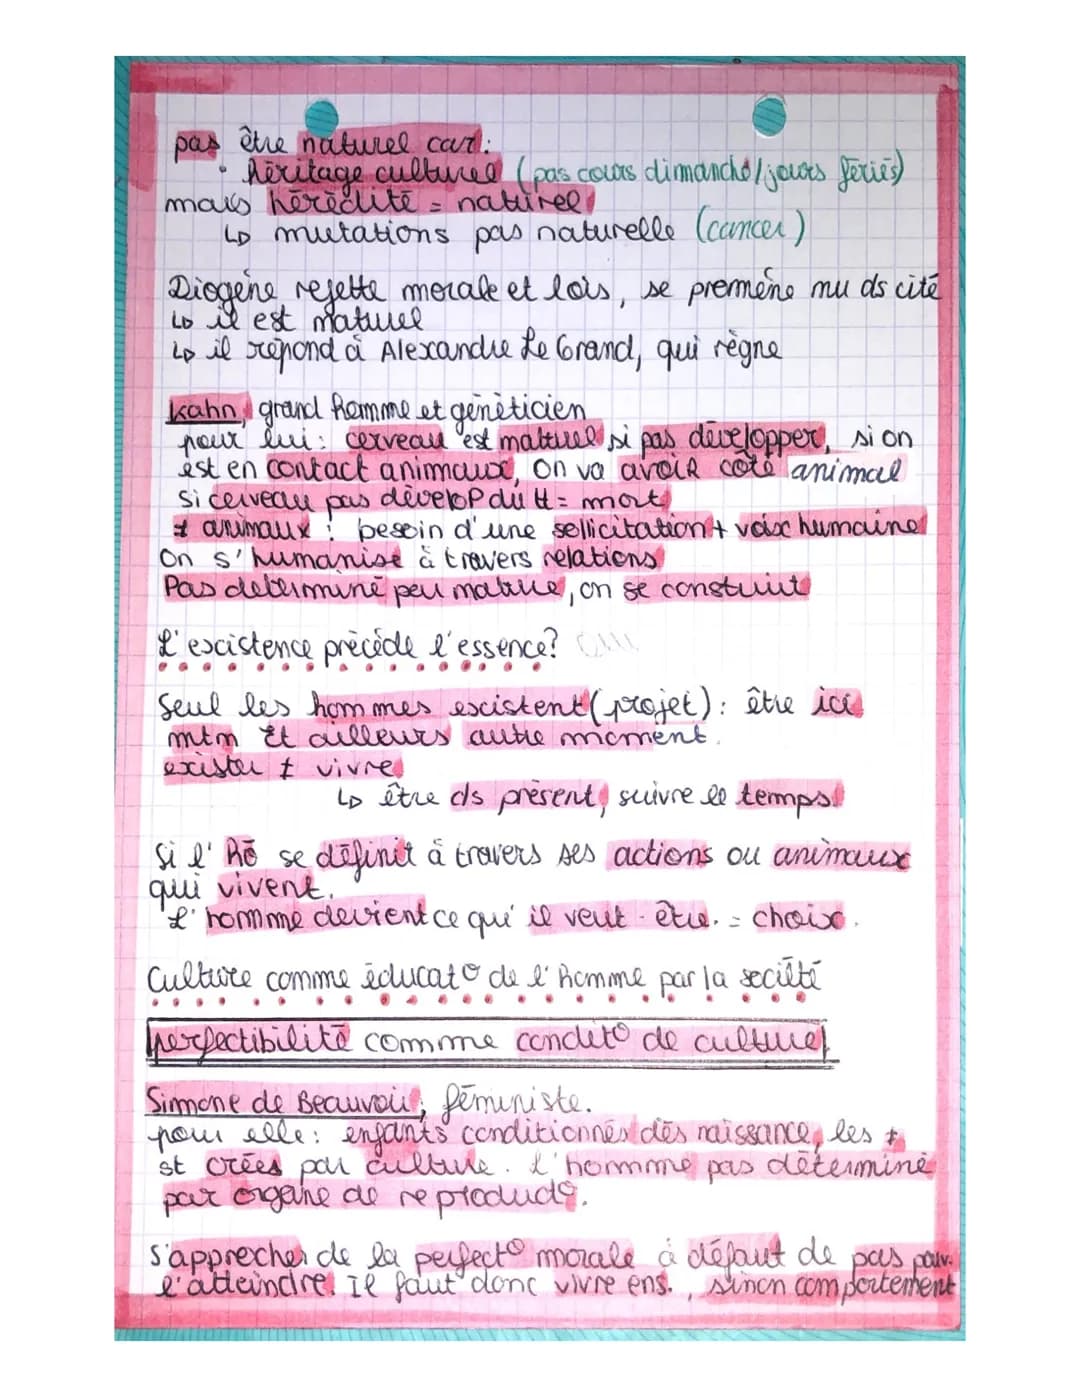 pas être naturel car:
· héritage culturel (pas cours dimanche/jours fériés)
mais hérédité = naturel
↳ mutations pas naturelle (cancer)
Diogène rejette morale et lois, se promène nu ds cité
↳ il est naturel
↳ il répond à Alexandre Le Grand, qui règne
Kahn, grand homme et généticien
pour lui: cerveau est naturel si pas développer, si on
est en contact animaux, on va avoir côté animal
si cerveau pas dévelop du H = mort
≠ animaux : besoin d'une sollicitation + voix humaine
On s'humanise à travers relations
Pas déterminé par nature, on se construit
L'existence précède l'essence?
Seul les hommes existent (projet): être ici
mtm Et ailleurs autre moment.
exister ≠ vivre
↳ être ds présent, suivre le temps
Si l'hō se définit à travers ses actions ou animaux
qui vivent.
L'homme devient ce qu'il veut être. = choix.
Culture comme éducat° de l'homme par la société
perfectibilité comme condit° de culture
Simone de Beauvoir, féministe.
pour elle: enfants conditionnés dès naissance, les ≠
st crées par culture. L'homme pas déterminé
par organe de reproduct°.
S'approcher de la perfect° morale à défaut de pas pouv.
l'atteindre. Il faut donc vivre ens., sinon comportement